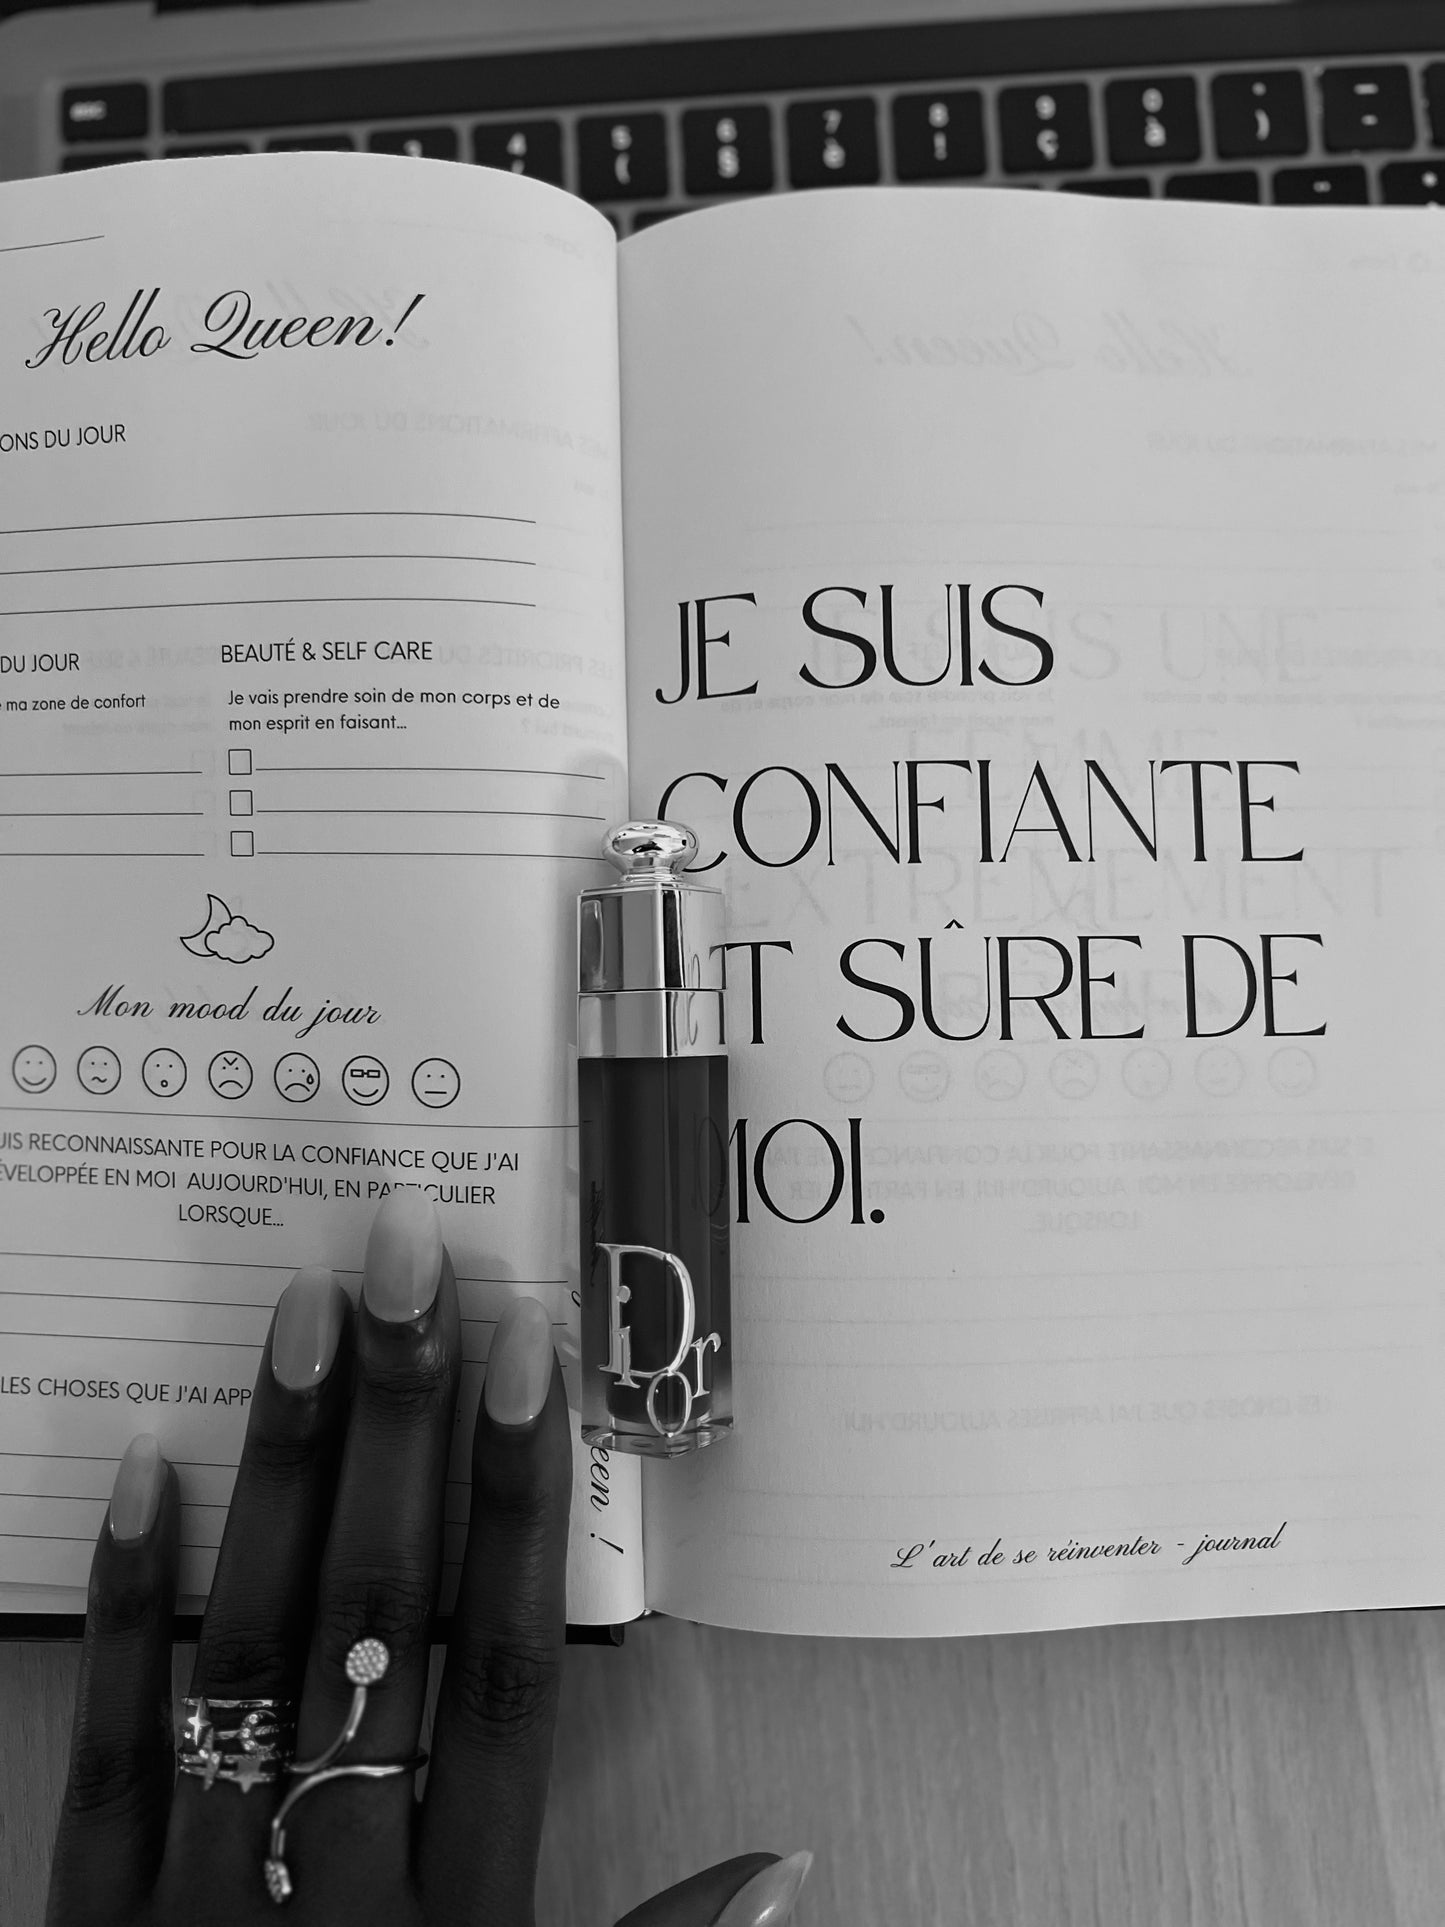 esc
3
4
'
5
(
6
§
7
è
8
!
9
ç
0
à
°
)
Hello Queen!
ONS DU JOUR
DU JOUR
ma zone de confort
BEAUTÉ & SELF CARE
Je vais prendre soin de mon corps et de
mon esprit en faisant...
Mon mood du jour
UIS RECONNAISSANTE POUR LA CONFIANCE QUE J'AI
ÉVELOPPÉE EN MOI AUJOURD'HUI, EN PARTICULIER
LORSQUE...
LES CHOSES QUE J'AI APP
een !
JE SUIS
CONFIANTE
T SÛRE DE
MOI.
Dior
L'art de se réinventer - journal